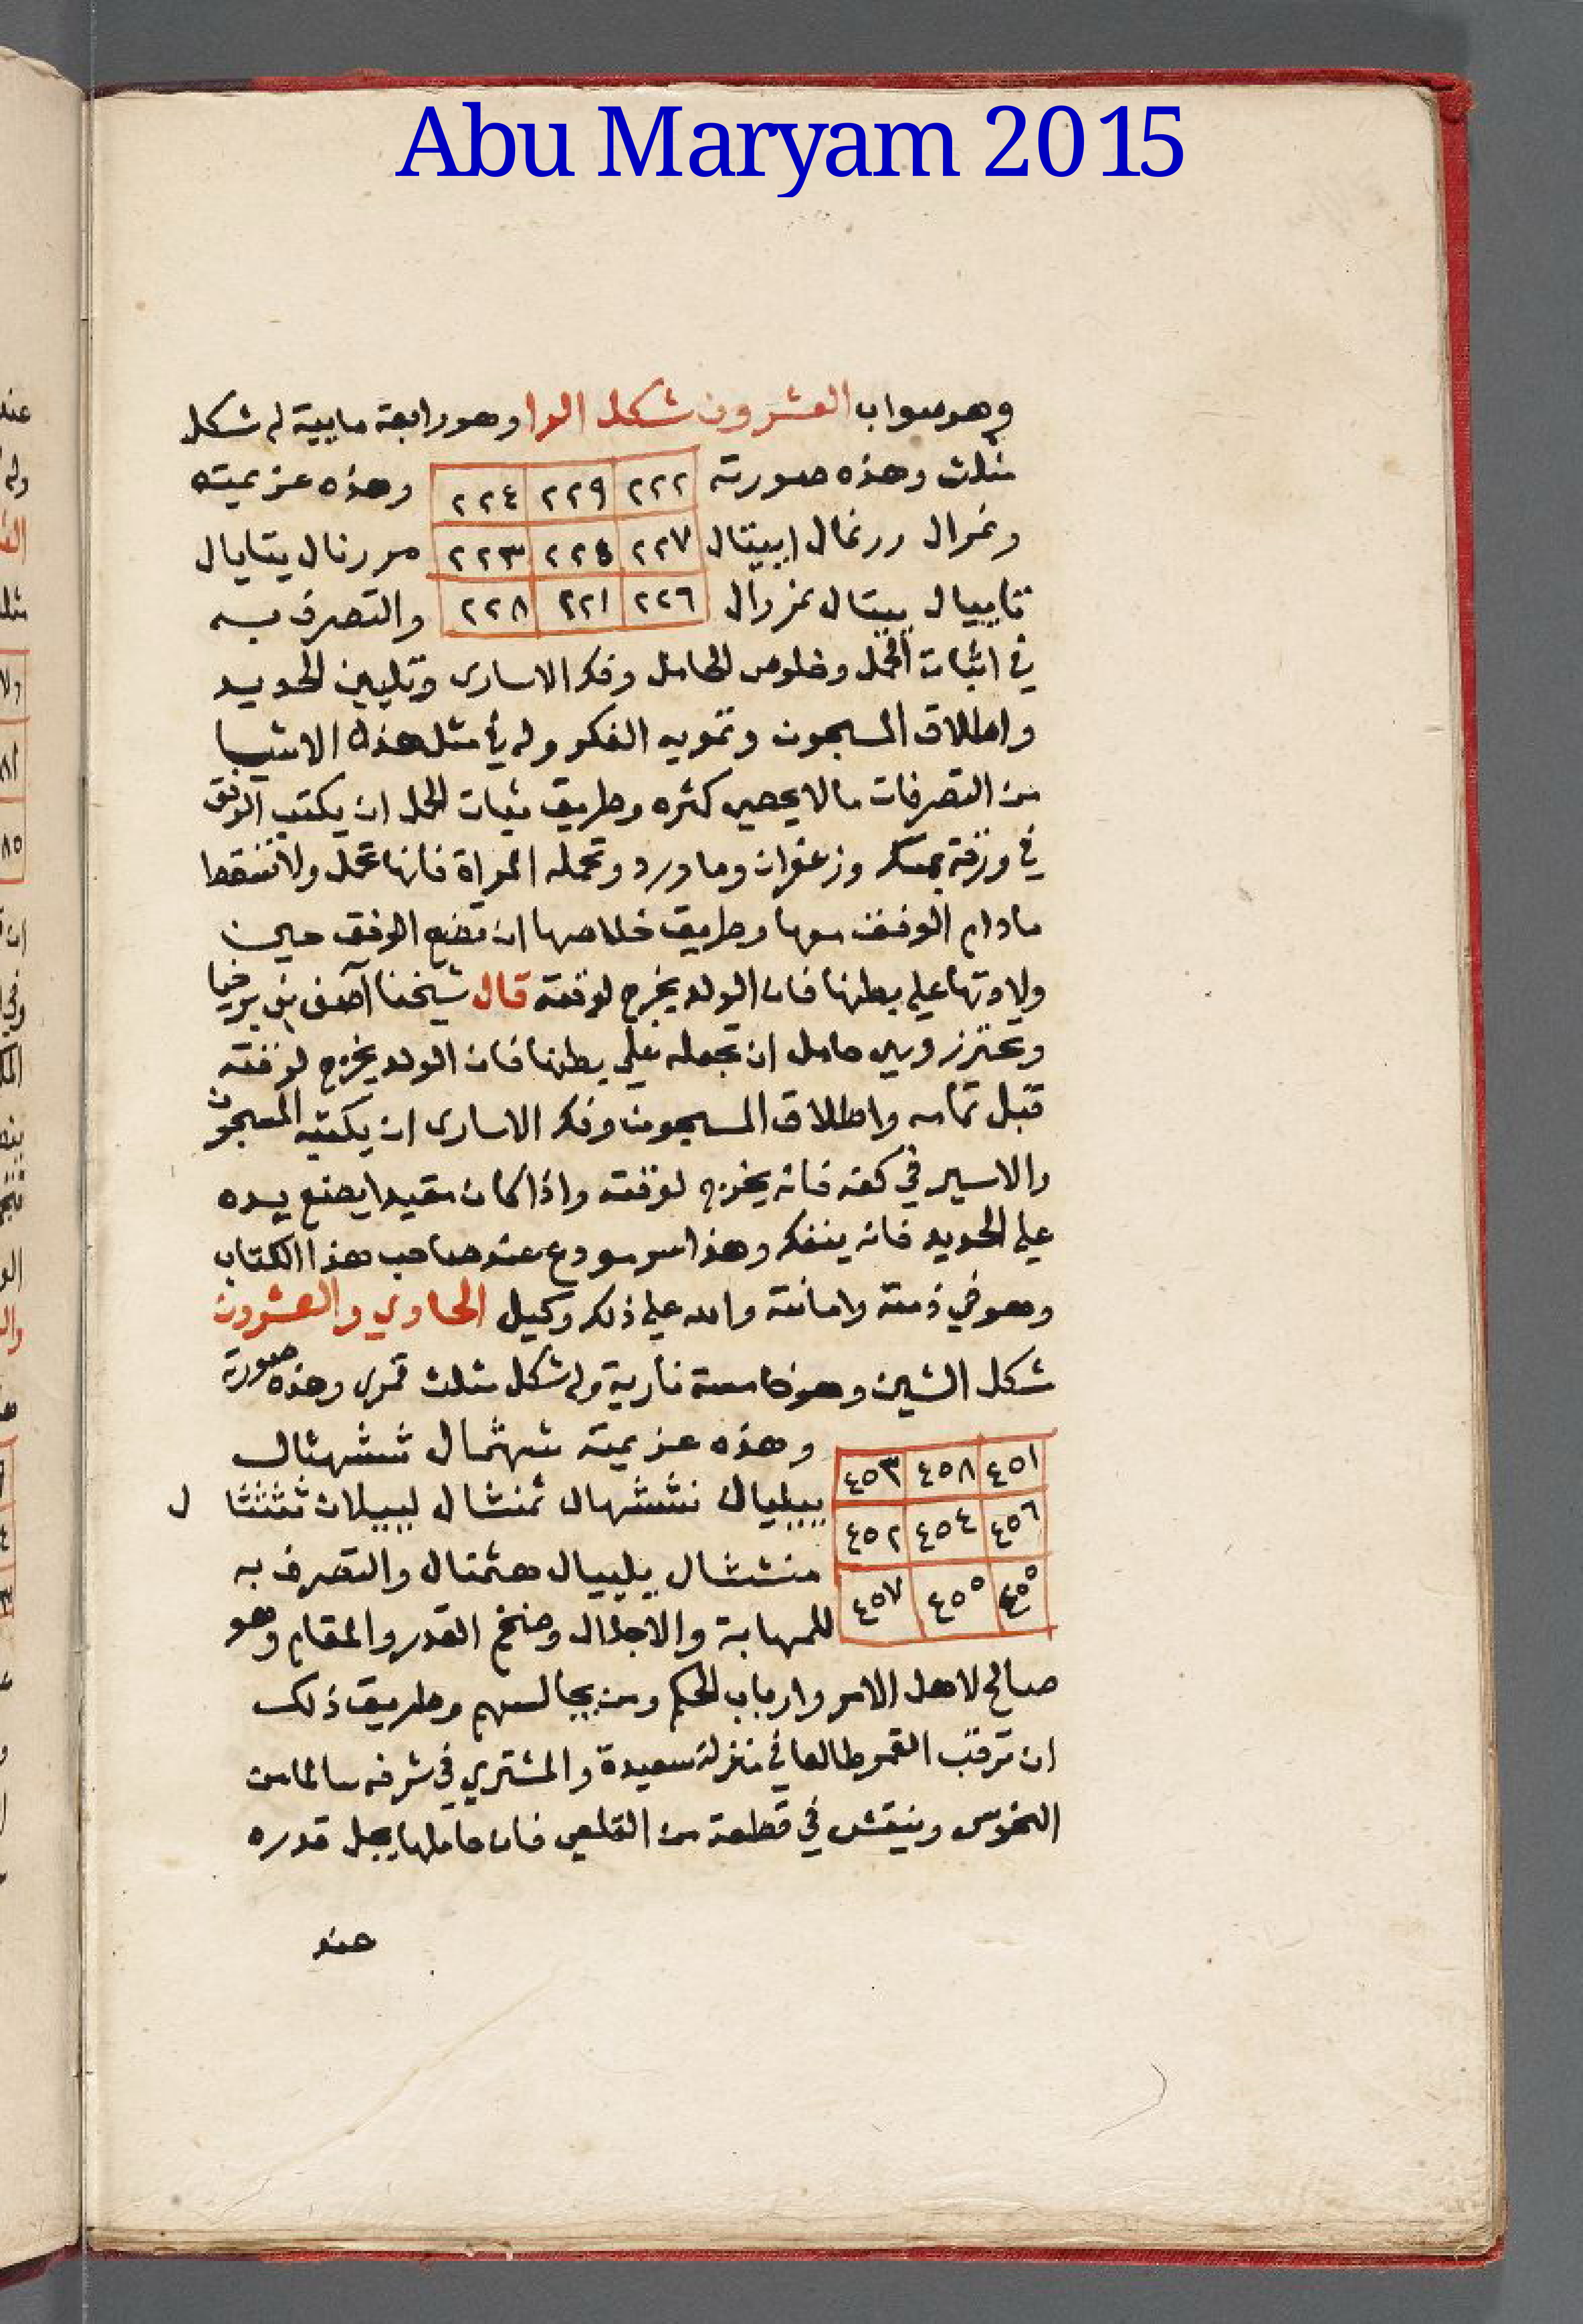 Abu Maryam 2015
وهو صواب العشرون شكل الرا وهو رابعة مايية له شكل
مثلث وهذه صورته ٢٢٢ ٢٢٩ ٢٢٤ وهذه عزيمته
٢٢٧ ٢٢٥ ٢٢٣
٢٢٦ ٢٢١ ٢٢٨ والتصرف به
في اثبات الحمل وخلوص الحامل وفك الاسارى وتليين الحديد
واطلاق المسجون وتمويه الفكر وله في مثل هذه الاشيا
من التصرفات مالا يحصى كثره وطريق ثبات الحمل ان يكتب الوفق
في ورقة بمسك وزعفران وماورد وتحمله المراة فانها تحمل ولا تسقط
مادام الوفق معها وطريق خلاصها ان تضع الوفق حين
ولادتها على بطنها فان الولد يخرج لوقته قال شيخنا آصف بن برخيا
وتحترز وهي حامل ان تجعله على بطنها فان الولد يخرج لوقته
قبل تمامه واطلاق المسجون وفك الاسارى ان يكتبه المسجون
والاسير في كفه فانه يخرج لوقته واذا كان مقيدا يضع يده
على الحديد فانه ينفك وهذا سر مودع عند صاحب هذا الكتاب
وهو في ذمته وامانته والله على ذلك وكيل الحادي والعشرون
شكل الشين وهو خامسة نارية وله شكل مثلث قمرى وهذه صورته
٤٥١ ٤٥٨ ٤٥٣ وهذه عزيمته
٤٥٦ ٤٥٤ ٤٥٢
٤٥٥ ٤٥٥ ٤٥٧ والتصرف به
للمهابة والاجلال وضخم القدر والمقام وهو
صالح لاهل الامر وارباب الحكم ومن يجالسهم وطريق ذلك
ان ترقب القمر طالعا في منزلة سعيدة والمشتري في شرفه سالما من
النحوس وينقش في قطعة من القلعي فان حاملها يجل قدره
عند